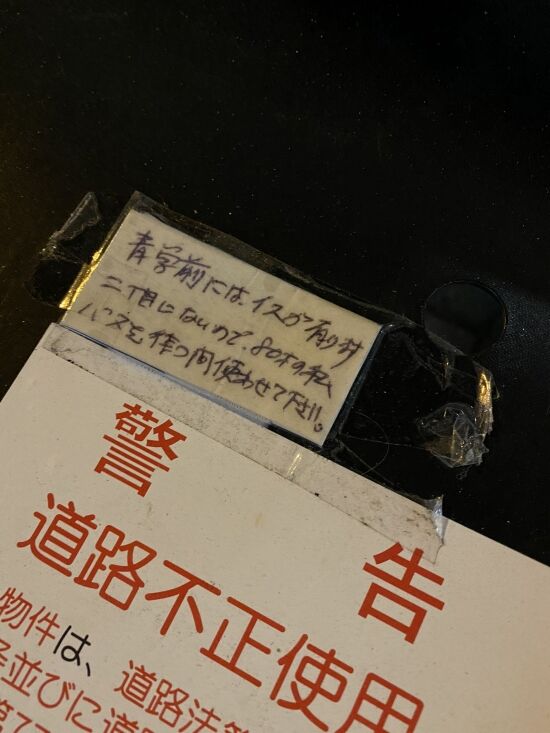 青学前には、イスが有り
二丁目にないので、80才の私
バスを待つ間使わせて下さい。
警告
道路不正使用
物件は、道路法第
条並びに道
第7